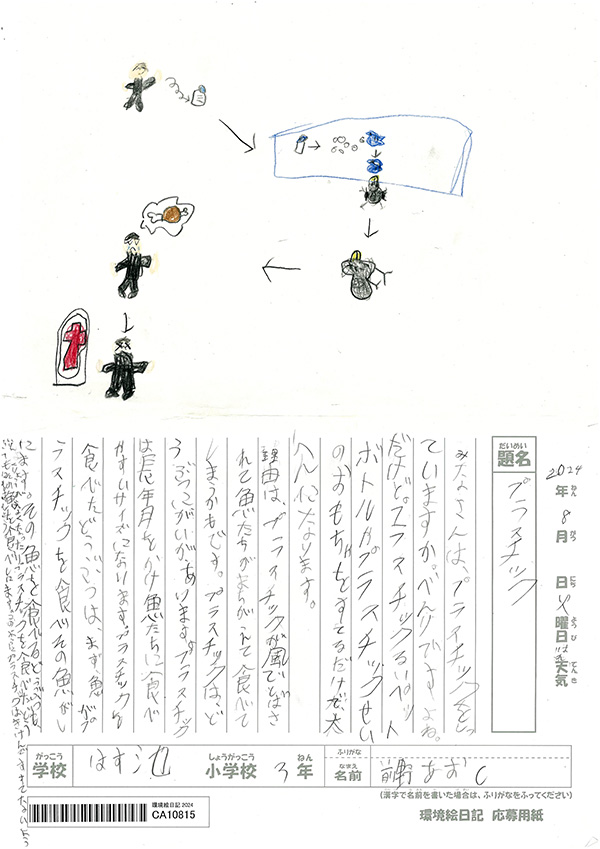 2024年 8月 日 曜日 天気
だいめい
題名
プラスチック
みなさんは、プラスチックをしっ
ていますか。べんりですよね。
だけど。プラスチックるいペット
ボトルやプラスチックせい
のおもちゃをすてるだけで大
へんになります。
理由は、プラスチックが風でとばさ
れて魚たちがまちがえて食べて
しまうかもです。プラスチックは、ど
うぶつにがいがあります。プラスチック
は長年月をかけ魚たちに食べ
やすいサイズになります。プラスチックを
食べたどうぶつは、まず魚がプ
ラスチックを食べその魚がし
にます。その魚を食れるどうぶつも
がっこう
学校
はす池
しょうがっこう
小学校
3
ねん
年
ふりがな
なまえ
名前
あお
(漢字で名前を書いた場合は、ふりがなをふってください)
環境絵日記 2024
CA10815
環境絵日記 応募用紙